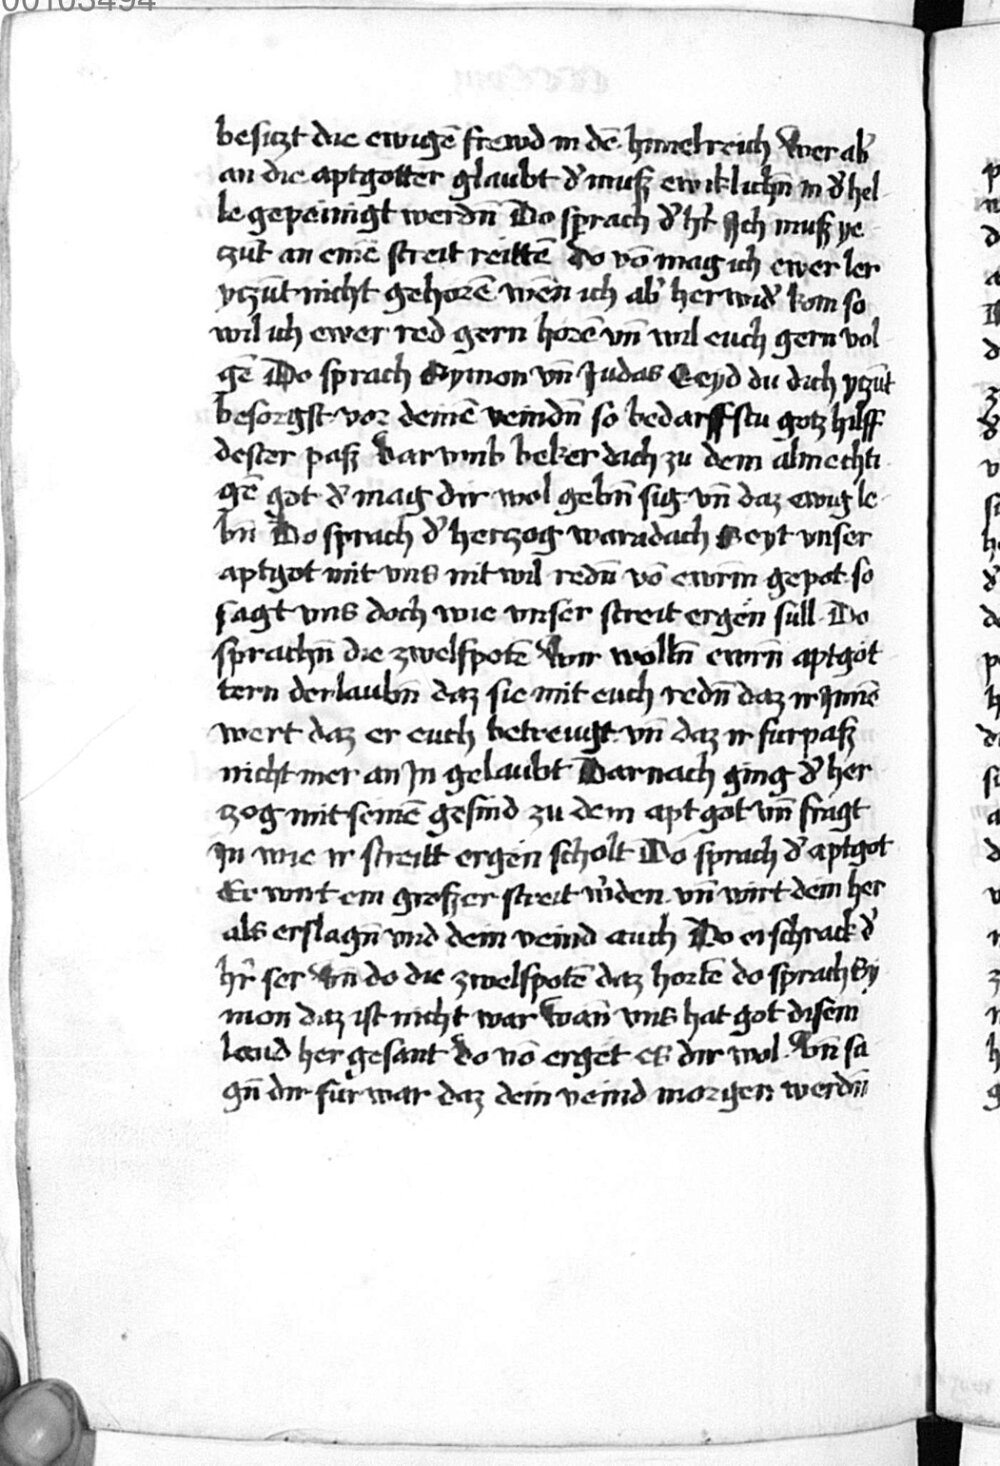 00103494
besiczt die ewigē frewd in dē himelreich Wer ab̛
an die aptgotter glaubt d̛ muß ewiklichn̄ in d̛ hel
le gepeinigt werdn̄ Do sprach d̛ hr̄ Ich muß ye
czūt an einē streit reittē Do vō mag ich ewer ler
yczūt nicht gehorē wen̄ ich ab̛ her wid̛ kom so
wil ich ewer red gern horē vn̄ wil euch gern vol
gē Do sprach Symon vn̄ Judas Seyd du dich yczūt
besorgst vor deinē veindn̄ so bedarffstu gotz hilff
dester paß Darvmb beker dich zu dem almechti
gē got d̛ mag dir wol gebn̄ sig vn̄ daz ewig le
bn̄ Do sprach d̛ herczog waradach Seyt vnser
aptgot mit vns nit wil redn̄ vō ewrm gepot so
sagt vns doch wie vnser streit ergen̄ sull Do
sprachn̄ die zwelfpotē Wir wolln̄ ewrn̄ aptgot
tern derlaubn̄ daz sie mit euch redn̄ daz ir Innē
wert daz er euch betreugt vn̄ daz ir furpaß
nicht mer an In gelaubt Darnach ging d̛ her
zog mit seinē gesind zu dem aptgot vn̄ fragt
In wie ir streitt ergen scholt Do sprach d̛ aptgot
Er wirt ein großer streit w̛den vn̄ wirt dein her
als erslagn̄ vnd dein veind auch Do erschrack d̛
hr̄ ser Vn̄ do die zwelfpotē daz hortē do sprach Sy
mon daz ist nicht war Wan̄ vns hat got disem
land her gesant Do vō erget es dir wol Vn̄ sa
gn̄ dir fur war daz dein veind morgen werdn̄